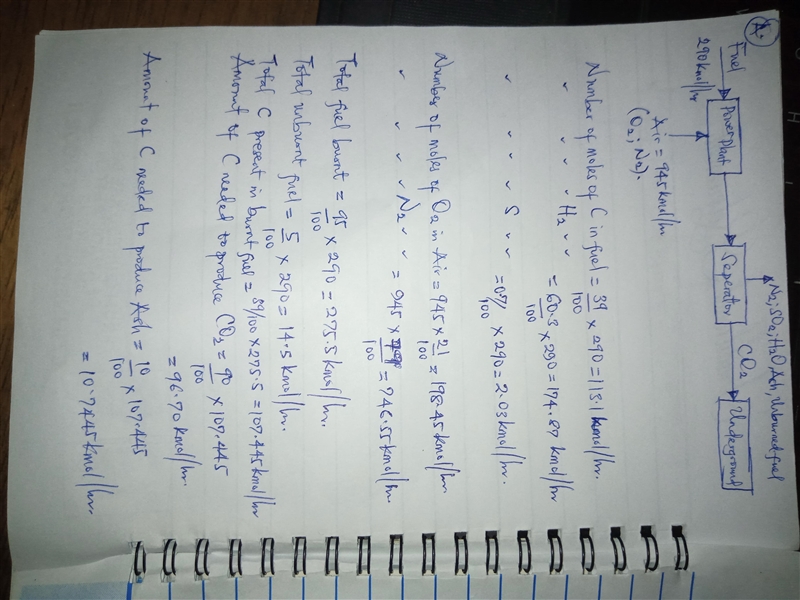 A.
Fuel
290 kmol/hr
Power plant
Air = 945 kmol/hr
(O2; N2).
Seperation
N2; SO2; H2O Ash, Unburned fuel
CO2
Underground
Number of moles of C in fuel = 39/100 × 290 = 113.1 kmol/hr.
〃 〃 〃 〃 H2 〃 〃 = 60.3/100 × 290 = 174.87 kmol/hr
〃 〃 〃 〃 S 〃 〃 = 0.7/100 × 290 = 2.03 kmol/hr.
Number of moles of O2 in Air = 945 × 21/100 = 198.45 kmol/hr.
〃 〃 〃 〃 N2 〃 〃 = 945 × 79/100 = 746.55 kmol/hr.
Total fuel burnt = 95/100 × 290 = 275.5 kmol/hr
Total unburnt fuel = 5/100 × 290 = 14.5 kmol/hr.
Total C present in burnt fuel = 39/100 × 275.5 = 107.445 kmol/hr
Amount of C needed to produce CO2 = 90/100 × 107.445
= 96.70 kmol/hr.
Amount of C needed to produce Ash = 10/100 × 107.445
= 10.7445 kmol/hr.